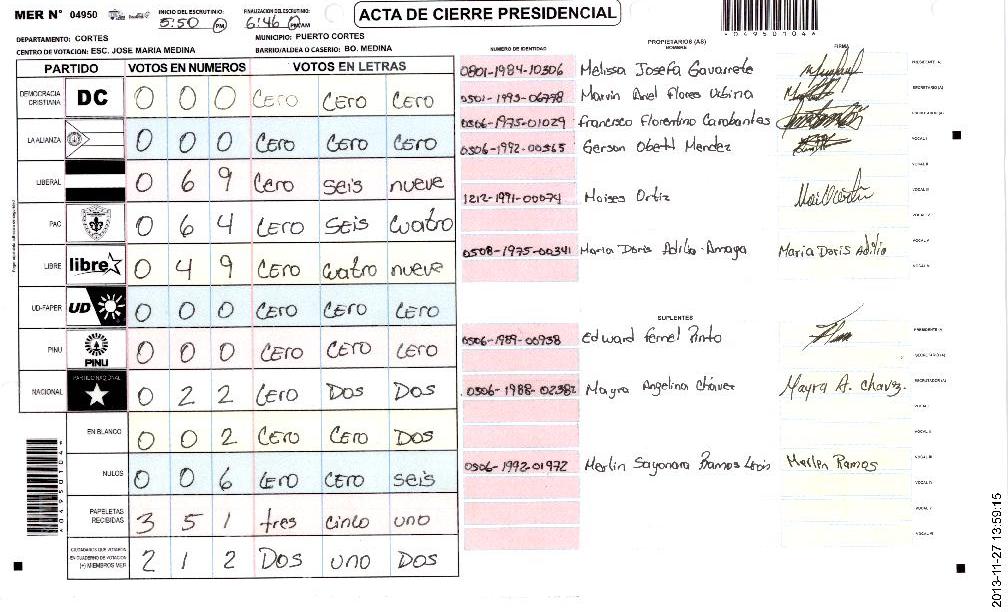 MER N° 04950 INICIO DEL ESCRUTINIO: 5:50 PM FINALIZACIÓN DEL ESCRUTINIO: 6:46 PM/AM ACTA DE CIERRE PRESIDENCIAL
DEPARTAMENTO: CORTES MUNICIPIO: PUERTO CORTES
CENTRO DE VOTACION: ESC. JOSE MARIA MEDINA BARRIO/ALDEA O CASERIO: BO. MEDINA
PARTIDO VOTOS EN NUMEROS VOTOS EN LETRAS
DEMOCRACIA CRISTIANA DC 0 0 0 Cero Cero Cero
LA ALIANZA 0 0 0 Cero Cero Cero
LIBERAL 0 6 9 Cero seis nueve
PAC 0 6 4 Cero Seis Cuatro
LIBRE libre 0 4 9 Cero Cuatro nueve
UD-FAPER UD 0 0 0 Cero Cero Cero
PINU PINU 0 0 0 Cero Cero Cero
NACIONAL PARTIDO NACIONAL 0 2 2 Cero Dos Dos
EN BLANCO 0 0 2 Cero Cero Dos
NULOS 0 0 6 Cero Cero seis
PAPELETAS RECIBIDAS 3 5 1 tres cinco uno
CIUDADANOS QUE VOTARON EN CUADERNO DE VOTACION (+) MIEMBROS MER 2 1 2 Dos uno Dos
*04950104*
PROPIETARIOS (AS)
NUMERO DE IDENTIDAD NOMBRE FIRMA
0801-1984-10306 Melissa Josefa Gavarrete PRESIDENTE (A)
0501-1993-06798 Marvin Ariel Flores Urbina SECRETARIO (A)
0506-1975-01029 Francisco Florentino Carabantes ESCRUTADOR (A)
0506-1992-00365 Gerson Obeth Mendez VOCAL I
VOCAL II
1212-1991-00074 Moises Ortiz VOCAL III
VOCAL IV
0508-1975-00341 Maria Doris Adilio Amaya Maria Doris Adilio VOCAL V
VOCAL VI
SUPLENTES
0506-1989-00938 Edward Fernel Pinto PRESIDENTE (A)
SECRETARIO (A)
0506-1988-02382 Mayra Angelina Chávez Mayra A. Chavez. ESCRUTADOR (A)
VOCAL I
VOCAL II
0506-1992-01972 Merlin Sayonara Ramos León Merlen Ramos VOCAL III
VOCAL IV
VOCAL V
VOCAL VI
*04950104*
2013-11-27 13:59:15